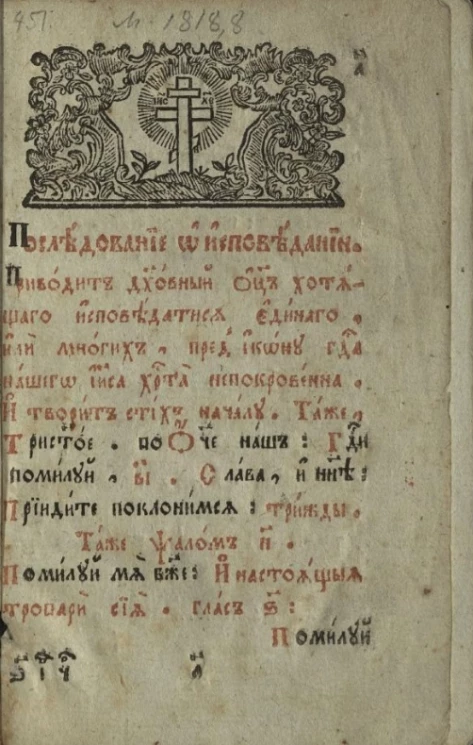 451. М. 1818,8
ІИС ХС
Послѣ́дованїе ѡ҆ и҆сповѣ́данїи.
Приво́дитъ дх҃о́вный ѻ҆ц҃ъ хотѧ́-
щаго и҆сповѣ́датисѧ є҆ди́наго,
и҆лѝ мно́гихъ, пред̾ і҆кѡ́ну гд҇а
на́шегѡ і҆и҃са хр҇та̀ непокрове́нна.
И҆ твори́тъ сті́хъ нача́лу. Та́же,
Трист҃о́е. по Ѻ҆́ч҃е на́шъ: Гд҇и
поми́лꙋй, в҃і. Сла́ва, и҆ ны́нѣ:
Прїиди́те поклони́мсѧ: три́жды.
Та́же ѱало́мъ н҃.
Поми́лꙋй мѧ̀ бж҃е: И҆ настоѧ́щыѧ
тропарѝ сїѧ̑. гла́съ ѕ҃:
Поми́лꙋй